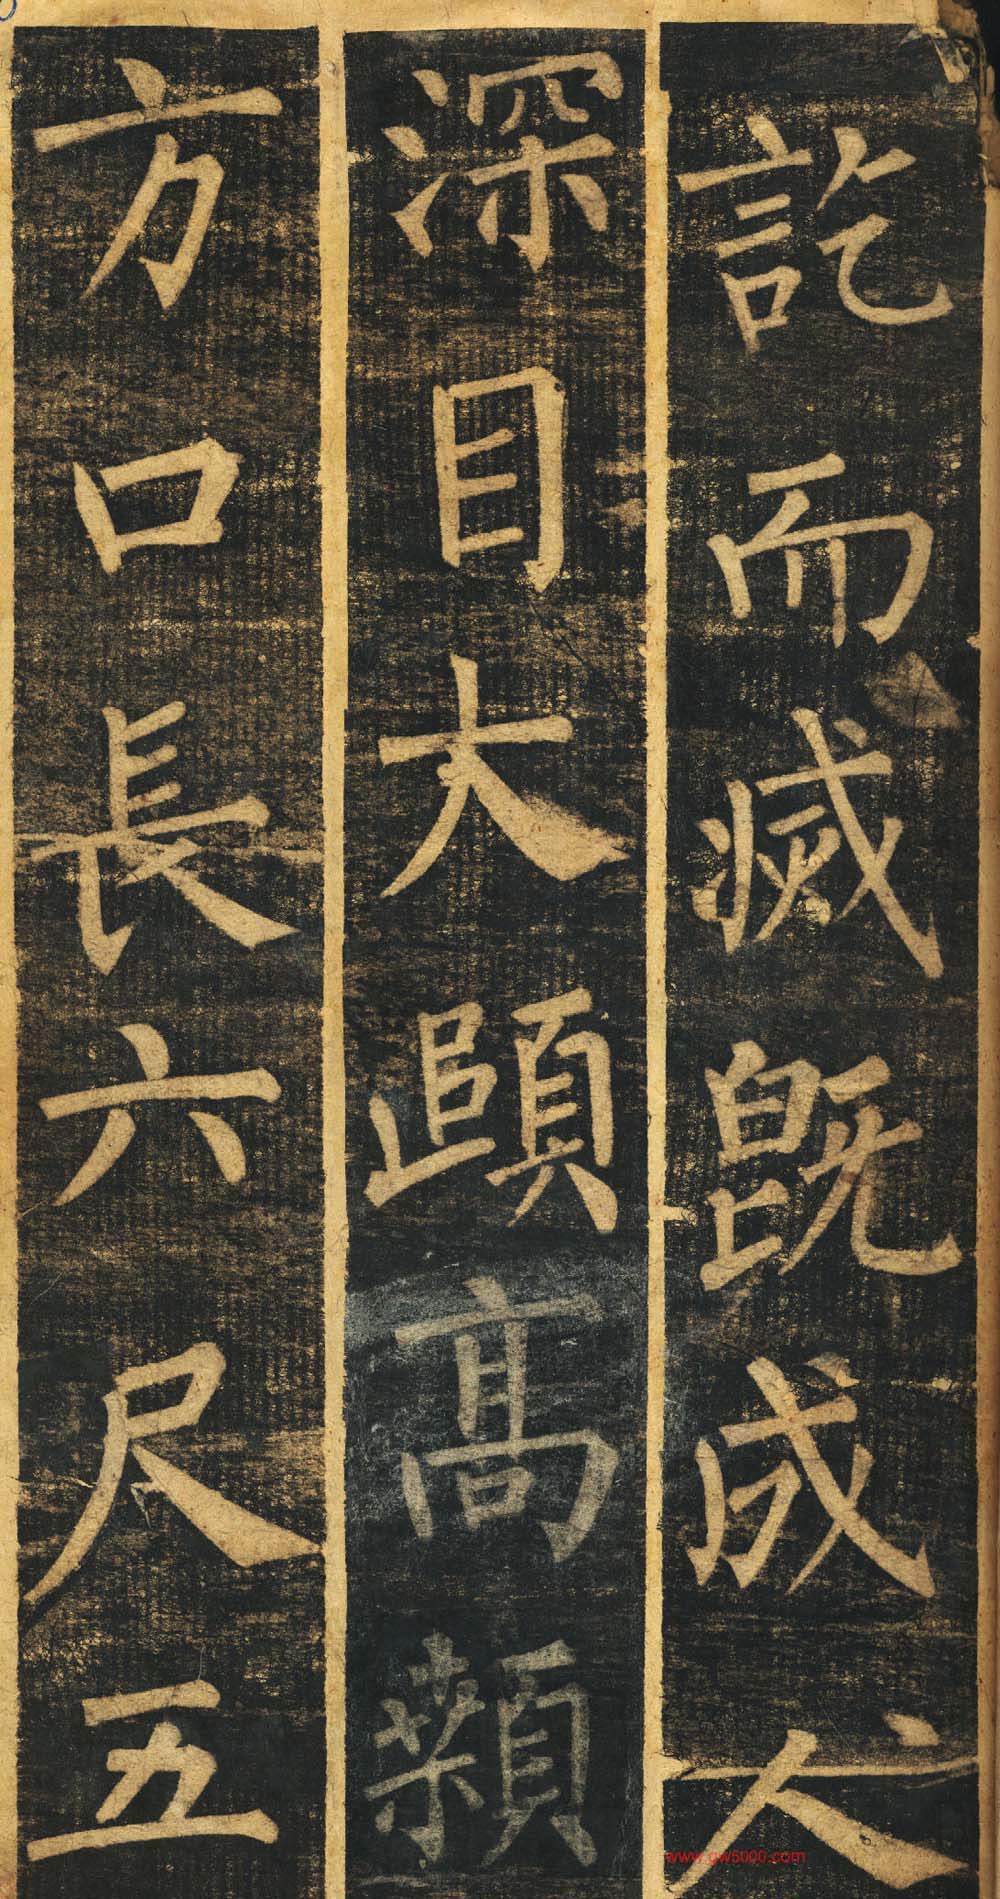 訖而滅既成人
深目大頤高顙
方口長六尺五
www.gw5000.com